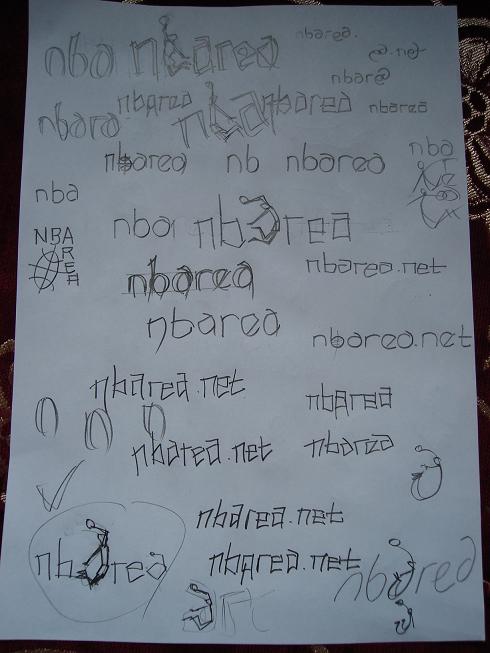 nba nbarea nbarea.
@.net
nbar@
nbara nbarea nba nbarea nbarea
nbarea nb nbarea nba
nba
nba nbarea
NBA
AREA
nbarea nbarea.net
nbarea nbarea.net
nbarea.net nbarea
n n n
nbarea.net nbarea
nbarea.net
nbarea nbarea.net nbarea